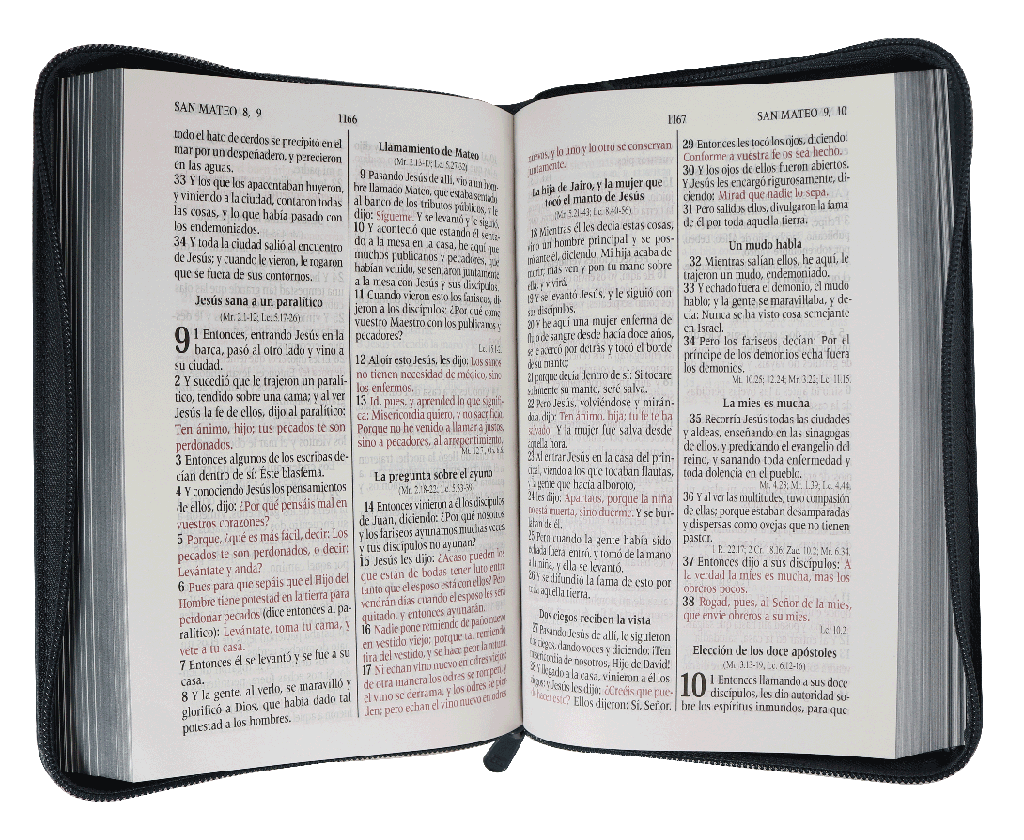 SAN MATEO 8, 9
1166
todo el hato de cerdos se precipitó en el
mar por un despeñadero, y perecieron
en las aguas.
33 Y los que los apacentaban huyeron,
y viniendo a la ciudad, contaron todas
las cosas, y lo que había pasado con
los endemoniados.
34 Y toda la ciudad salió al encuentro
de Jesús; y cuando le vieron, le rogaron
que se fuera de sus contornos.
Jesús sana a un paralítico
(Mr. 2.1-12; Lc. 5.17-26)
9 1 Entonces, entrando Jesús en la
barca, pasó al otro lado y vino a
su ciudad.
2 Y sucedió que le trajeron un paralí-
tico, tendido sobre una cama; y al ver
Jesús la fe de ellos, dijo al paralítico:
Ten ánimo, hijo; tus pecados te son
perdonados.
3 Entonces algunos de los escribas de-
cían dentro de sí: Éste blasfema.
4 Y conociendo Jesús los pensamientos
de ellos, dijo: ¿Por qué pensáis mal en
vuestros corazones?
5 Porque, ¿qué es más fácil, decir: Los
pecados te son perdonados, o decir:
Levántate y anda?
6 Pues para que sepáis que el Hijo del
Hombre tiene potestad en la tierra para
perdonar pecados (dice entonces al pa-
ralítico): Levántate, toma tu cama, y
vete a tu casa.
7 Entonces él se levantó y se fue a su
casa.
8 Y la gente, al verlo, se maravilló y
glorificó a Dios, que había dado tal
potestad a los hombres.
Llamamiento de Mateo
(Mr. 2.13-17; Lc. 5.27-32)
9 Pasando Jesús de allí, vio a un hom-
bre llamado Mateo, que estaba sentado
al banco de los tributos públicos, y le
dijo: Sígueme. Y se levantó y le siguió.
10 Y aconteció que estando él senta-
do a la mesa en la casa, he aquí que
muchos publicanos y pecadores, que
habían venido, se sentaron juntamente
a la mesa con Jesús y sus discípulos.
11 Cuando vieron esto los fariseos, di-
jeron a los discípulos: ¿Por qué come
vuestro Maestro con los publicanos y
pecadores?
Lc. 15.1-2.
12 Al oír esto Jesús, les dijo: Los sanos
no tienen necesidad de médico, sino
los enfermos.
13 Id, pues, y aprended lo que signifi-
ca: Misericordia quiero, y no sacrificio.
Porque no he venido a llamar a justos,
sino a pecadores, al arrepentimiento.
Mt. 12.7; Os. 6.6.
La pregunta sobre el ayuno
(Mr. 2.18-22; Lc. 5.33-39)
14 Entonces vinieron a él los discípulos
de Juan, diciendo: ¿Por qué nosotros
y los fariseos ayunamos muchas veces,
y tus discípulos no ayunan?
15 Jesús les dijo: ¿Acaso pueden los
que están de bodas tener luto entre
tanto que el esposo está con ellos? Pero
vendrán días cuando el esposo les será
quitado, y entonces ayunarán.
16 Nadie pone remiendo de paño nuevo
en vestido viejo; porque tal remiendo
tira del vestido, y se hace peor la rotura.
17 Ni echan vino nuevo en odres viejos;
de otra manera los odres se rompen, y
el vino se derrama, y los odres se pier-
den; pero echan el vino nuevo en odres
1167
SAN MATEO 9, 10
nuevos, y lo uno y lo otro se conservan
juntamente.
La hija de Jairo, y la mujer que
tocó el manto de Jesús
(Mr. 5.21-43; Lc. 8.40-56)
18 Mientras él les decía estas cosas,
vino un hombre principal y se pos-
tró ante él, diciendo: Mi hija acaba de
morir; mas ven y pon tu mano sobre
ella, y vivirá.
19 Y se levantó Jesús, y le siguió con
sus discípulos.
20 Y he aquí una mujer enferma de
flujo de sangre desde hacía doce años,
se le acercó por detrás y tocó el borde
de su manto;
21 porque decía dentro de sí: Si tocare
solamente su manto, seré salva.
22 Pero Jesús, volviéndose y mirán-
dola, dijo: Ten ánimo, hija; tu fe te ha
salvado. Y la mujer fue salva desde
aquella hora.
23 Al entrar Jesús en la casa del prin-
cipal, viendo a los que tocaban flautas,
y la gente que hacía alboroto,
24 les dijo: Apartaos, porque la niña
no está muerta, sino duerme. Y se bur-
laban de él.
25 Pero cuando la gente había sido
echada fuera, entró, y tomó de la mano
a la niña, y ella se levantó.
26 Y se difundió la fama de esto por
toda aquella tierra.
Dos ciegos reciben la vista
27 Pasando Jesús de allí, le siguieron
dos ciegos, dando voces y diciendo: ¡Ten
misericordia de nosotros, Hijo de David!
28 Y llegado a la casa, vinieron a él los
ciegos; y Jesús les dijo: ¿Creéis que pue-
do hacer esto? Ellos dijeron: Sí, Señor.
29 Entonces les tocó los ojos, diciendo:
Conforme a vuestra fe os sea hecho.
30 Y los ojos de ellos fueron abiertos.
Y Jesús les encargó rigurosamente, di-
ciendo: Mirad que nadie lo sepa.
31 Pero salidos ellos, divulgaron la fama
de él por toda aquella tierra.
Un mudo habla
32 Mientras salían ellos, he aquí, le
trajeron un mudo, endemoniado.
33 Y echado fuera el demonio, el mudo
habló; y la gente se maravillaba, y de-
cía: Nunca se ha visto cosa semejante
en Israel.
34 Pero los fariseos decían: Por el
príncipe de los demonios echa fuera
los demonios.
Mt. 10.25; 12.24; Mr. 3.22; Lc. 11.15.
La mies es mucha
35 Recorría Jesús todas las ciudades
y aldeas, enseñando en las sinagogas
de ellos, y predicando el evangelio del
reino, y sanando toda enfermedad y
toda dolencia en el pueblo.
Mt. 4.23; Mr. 1.39; Lc. 4.44.
36 Y al ver las multitudes, tuvo compasión
de ellas; porque estaban desamparadas
y dispersas como ovejas que no tienen
pastor.
1 R. 22.17; 2 Cr. 18.16; Zac. 10.2; Mr. 6.34.
37 Entonces dijo a sus discípulos: A
la verdad la mies es mucha, mas los
obreros pocos.
38 Rogad, pues, al Señor de la mies,
que envíe obreros a su mies.
Lc. 10.2.
Elección de los doce apóstoles
(Mr. 3.13-19; Lc. 6.12-16)
10 1 Entonces llamando a sus doce
discípulos, les dio autoridad so-
bre los espíritus inmundos, para que